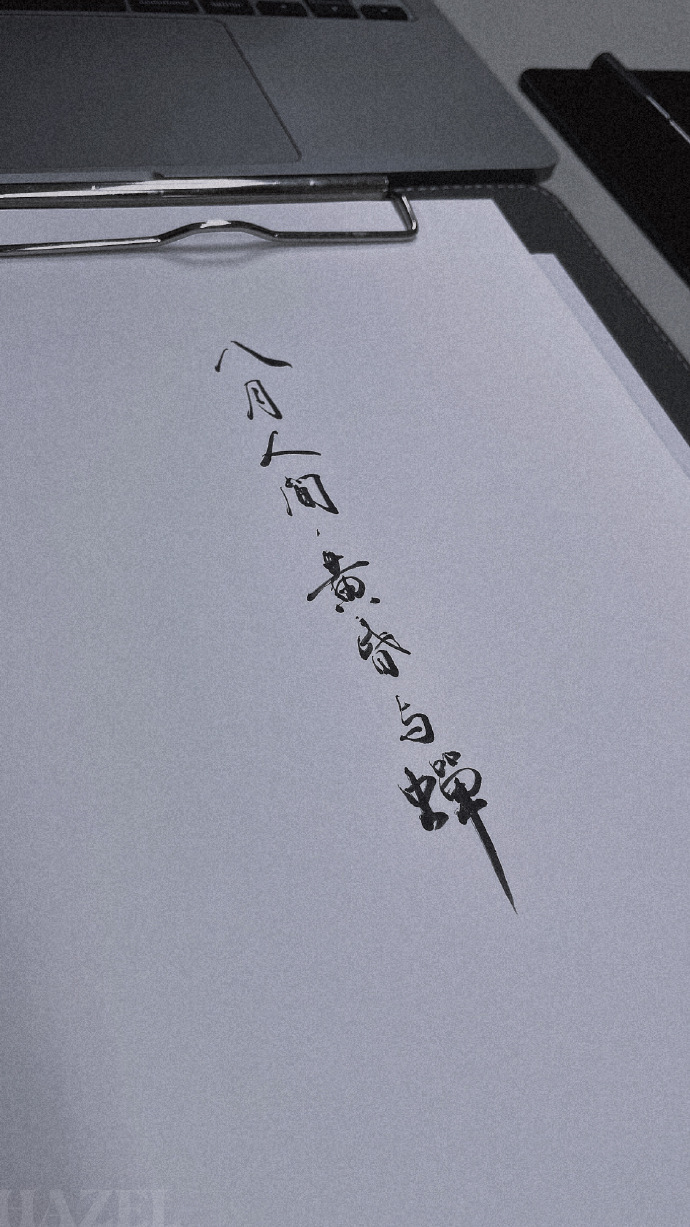 八月人间·黄昏与蟬
HAZEL